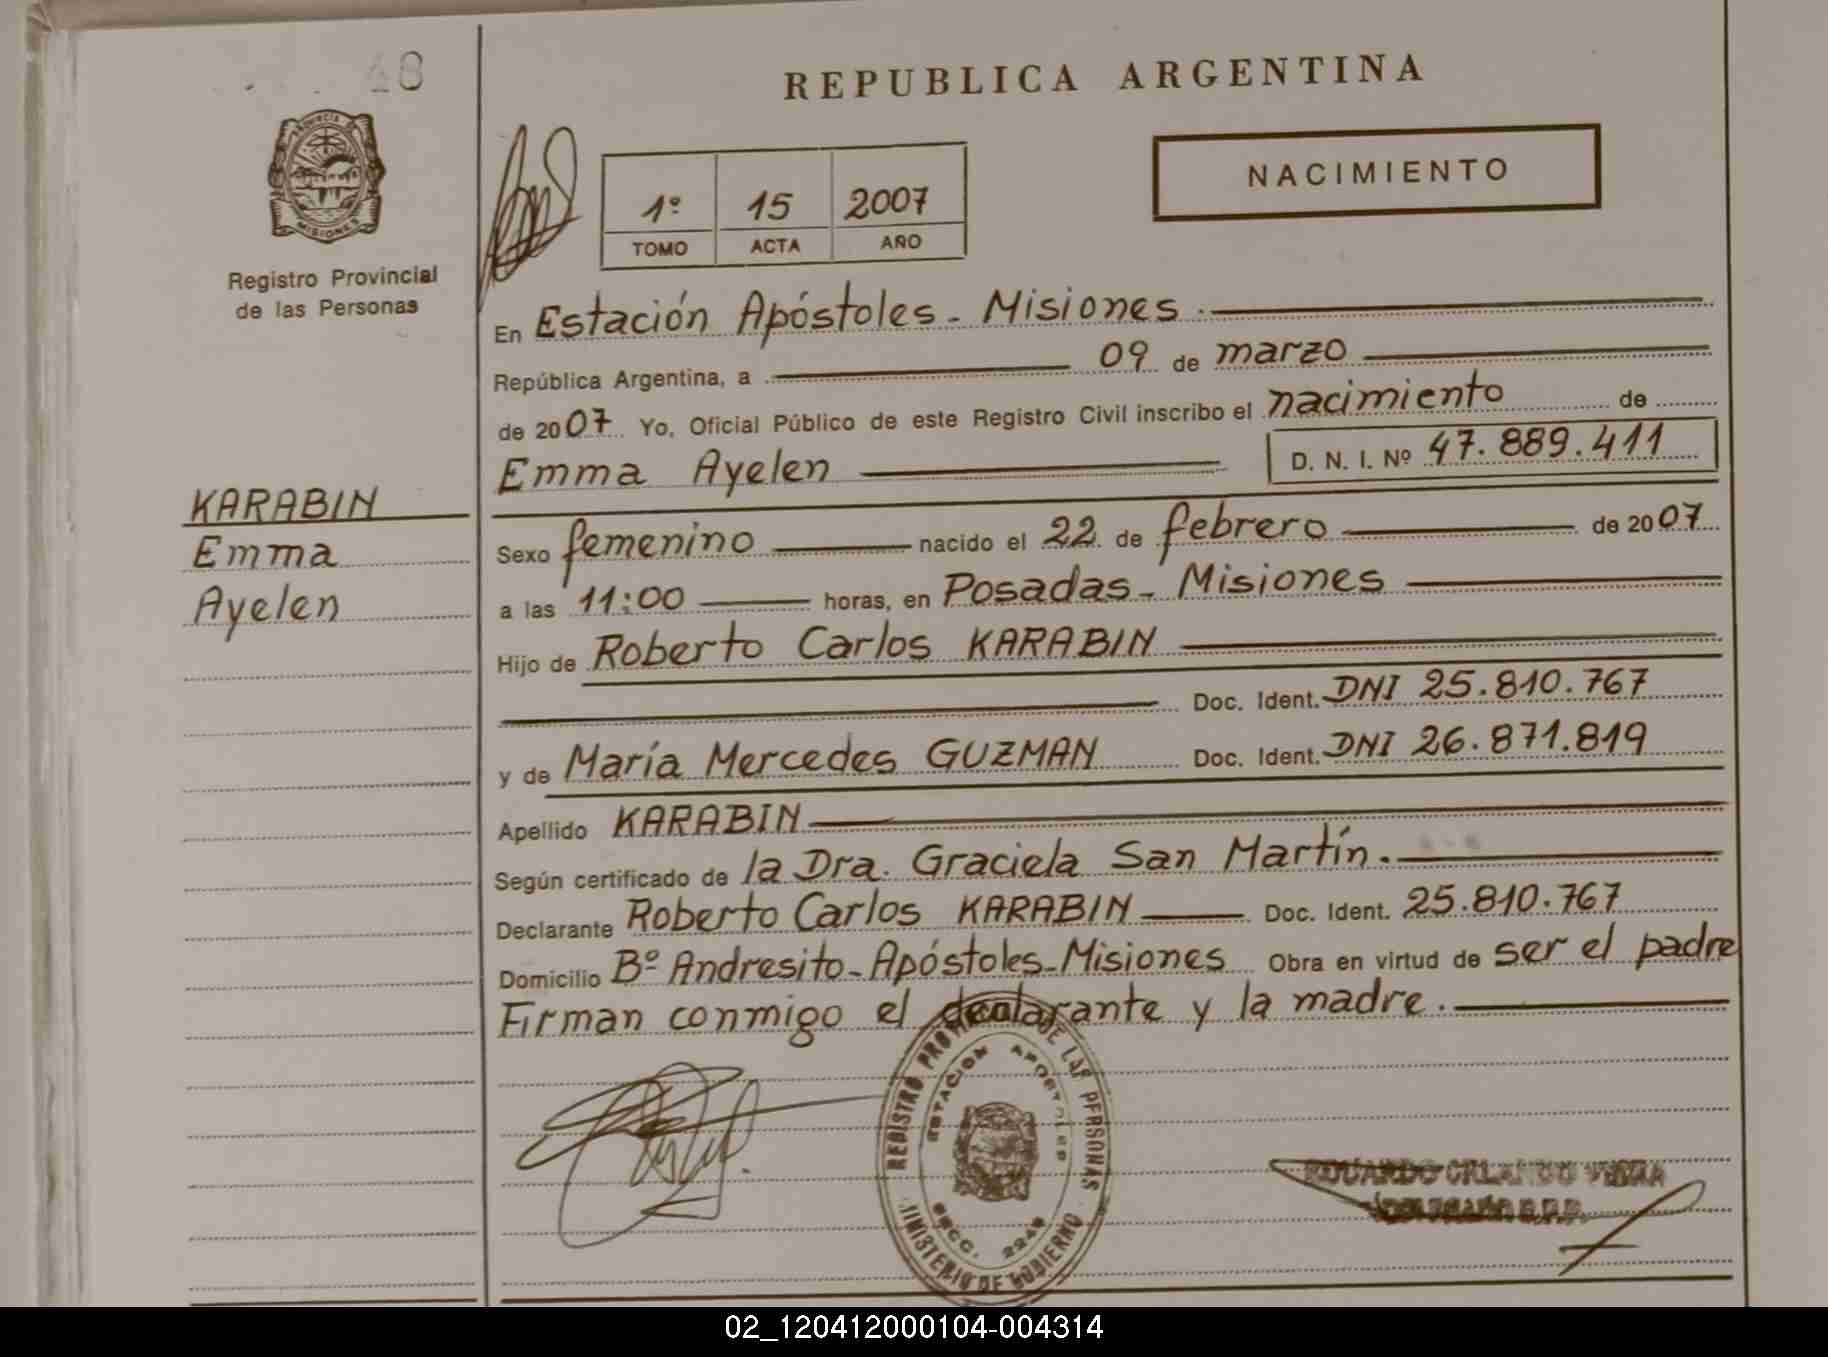 48
REPUBLICA ARGENTINA
NACIMIENTO
1º 15 2007
TOMO ACTA AÑO
PROVINCIA DE
MISIONES
Registro Provincial
de las Personas
En Estación Apóstoles - Misiones.
República Argentina, a 09 de marzo
de 2007 Yo, Oficial Público de este Registro Civil inscribo el nacimiento de
Emma Ayelen D. N. I. Nº 47.889.411
KARABIN
Emma
Ayelen
Sexo femenino nacido el 22 de febrero de 2007
a las 11:00 horas, en Posadas - Misiones
Hijo de Roberto Carlos KARABIN
Doc. Ident. DNI 25.810.767
y de María Mercedes GUZMAN Doc. Ident. DNI 26.871.819
Apellido KARABIN
Según certificado de la Dra. Graciela San Martín.
Declarante Roberto Carlos KARABIN Doc. Ident. 25.810.767
Domicilio Bº Andresito - Apóstoles - Misiones Obra en virtud de ser el padre
Firman conmigo el declarante y la madre.
REGISTRO PROVINCIAL DE LAS PERSONAS
ESTACION APOSTOLES
SECC. 2249
MINISTERIO DE GOBIERNO
EDUARDO ORLANDO
02_120412000104-004314